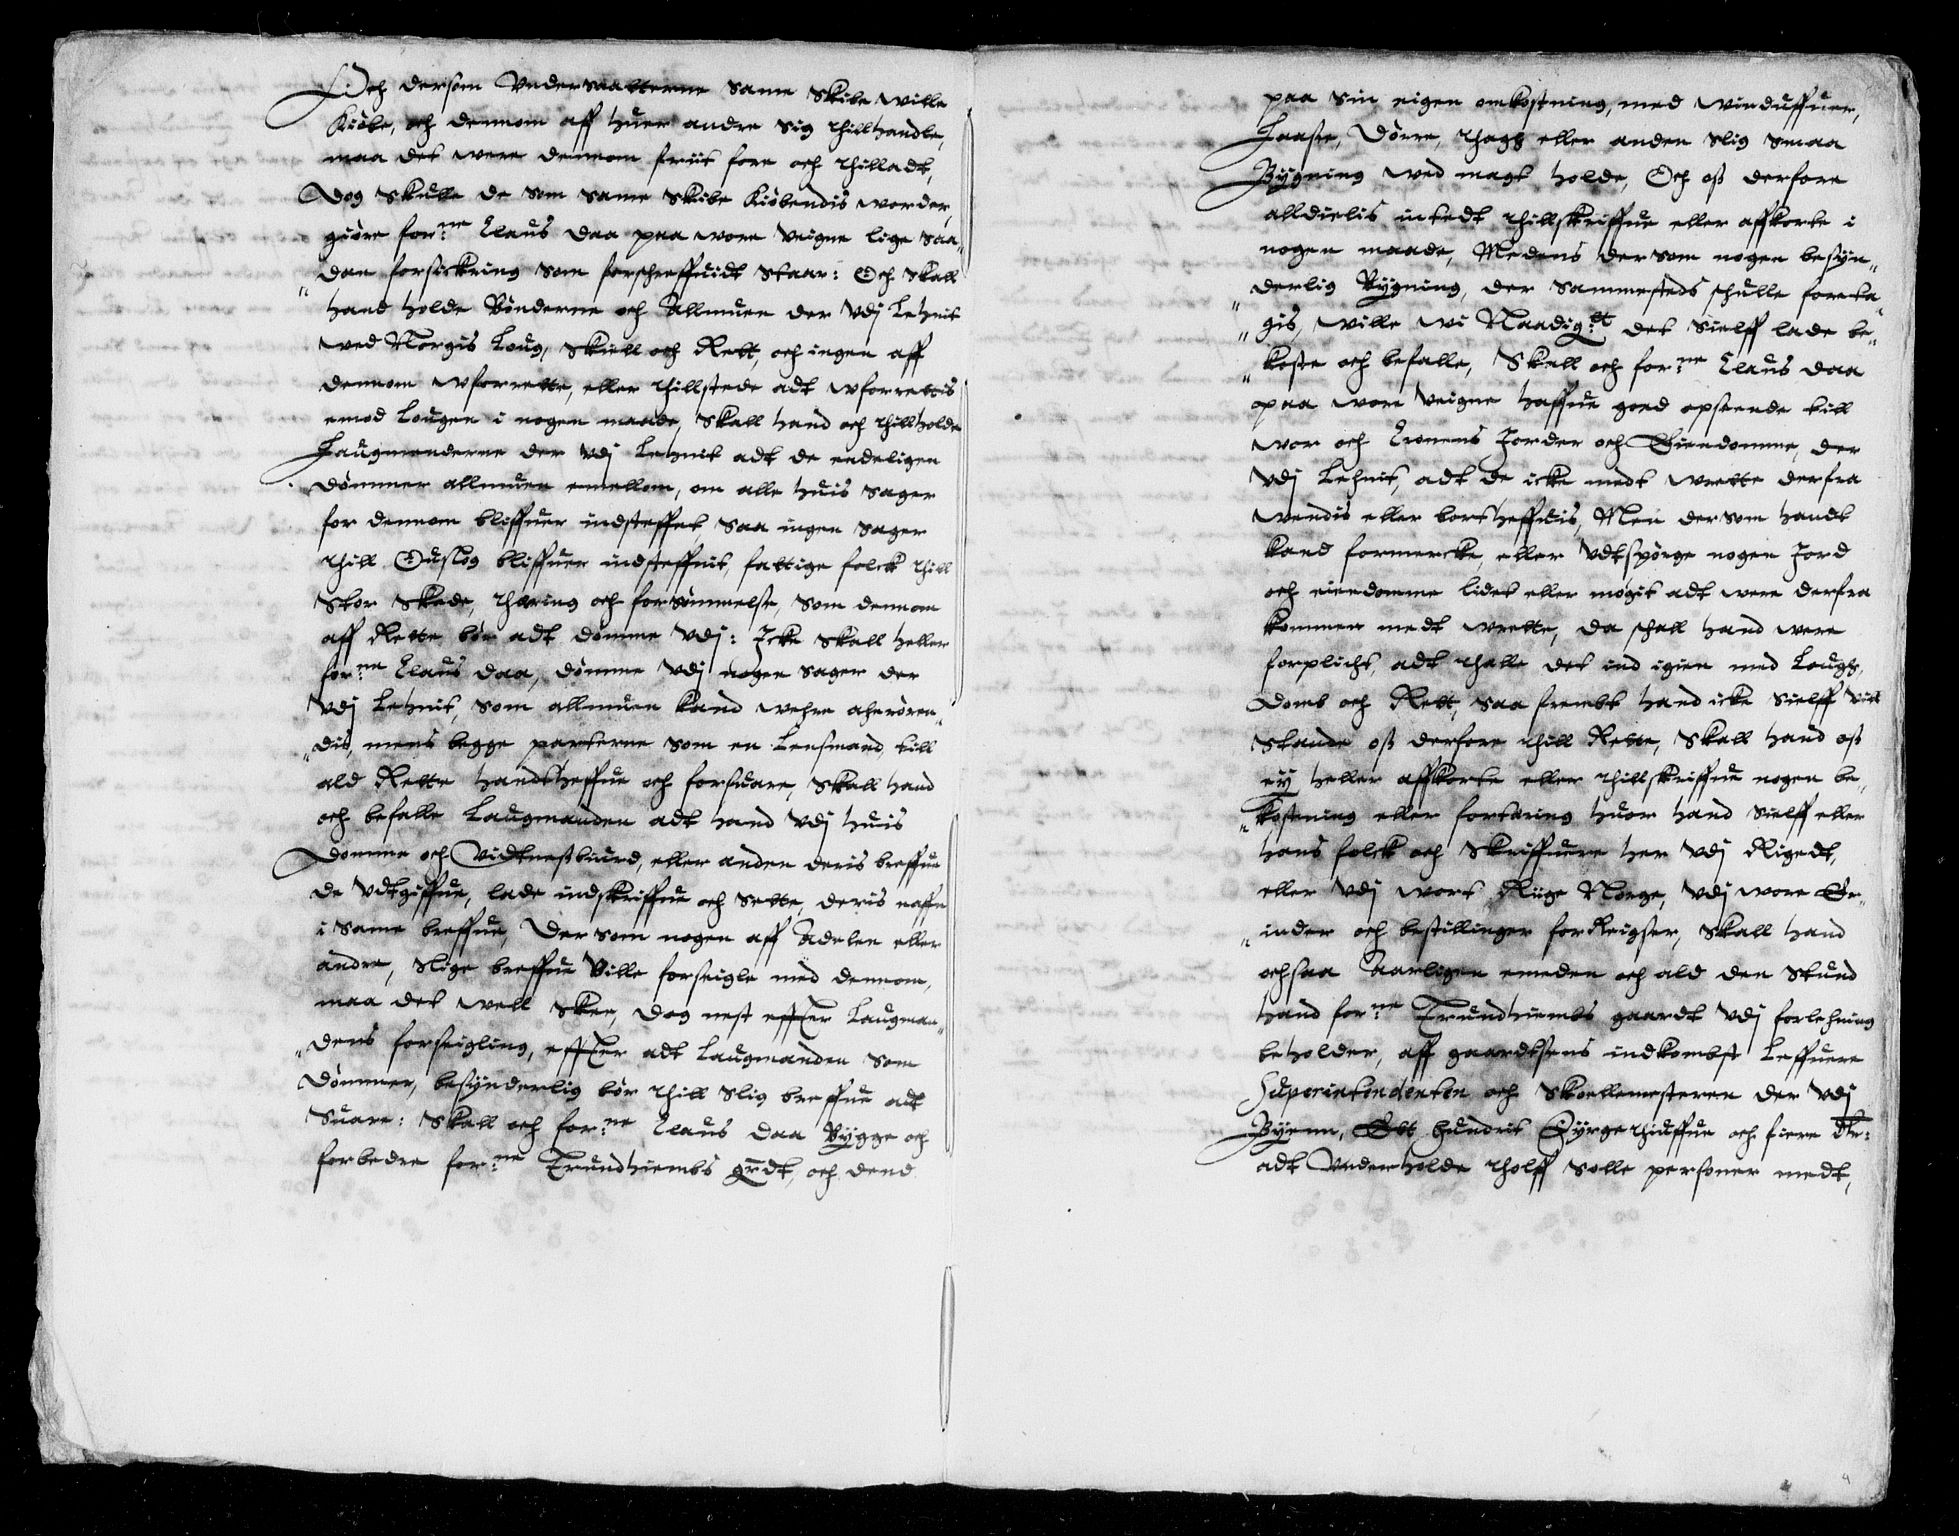 Och dersom Vndersaatterne same Skibe wille
Kiøbe, och dennom aff huer andre sig thillhandle,
maa det were dennom friit fore och thilladt,
Dog Skulle de som same Skibe Kiøbendis worder,
giøre for:ne Claus Daa paa wore Veigne lige saa„
„dan forsickring som forschreffuidt staar: Och Skall
hand holde Bønderne och Allmuen der Vdj Lehnit
wed Norgis Loug, Skiell och Rett, och ingen aff
dennom wforrette, eller thillstede adt wforrettis
emod Lougen i nogen maade, Skall hand och thillholde
Laugmenderne der Vdj Lehnit adt de endeligen
dømmer allmuen emellom, om alle huis sager
for dennom bliffuer indsteffet, saa ingen sager
thill Ouslog bliffuer indsteffnit, fattige folck thill
Stor Skade, thæring och forsømmelse, som dennom
aff Rette bør adt dømme Vdj: Icke Skall heller
for:ne Claus Daa, dømme Vdj nogen sager der
Vdj Lehnit, som allmuen kand wehre anrøren„
„dis, mens begge parterne som en Lensmand, till
ald Rette handtheffue och forsuare, Skall hand
och befalle Laugmanden adt hand Vdj huis
Domme och Vidtnesbiurd, eller anden deris breffue
de Vdtgiffue, lade indskriffue och sette, deris naffn
i same breffue, Der som nogen aff Adelen eller
andre, slige breffue Ville forseigle med dennom,
maa det well Skee, dog nest effter Laugman„
„dens forseigling, effter adt Laugmanden som
dømmer, besynderlig bør thill slig breffue adt
suare: Skall och for:ne Claus Daa Bygge och
forbedre for:ne Trundhiembs grdt, och dend
paa sin eigen omkostning, med winduffuer,
Laasse, Dørre, thagh eller anden slig smaa
Bygning wed magt holde, Och oß derfore
alldielis intedt thillskriffue eller affkorte i
nogen maade, Medens der som nogen besyn„
„derlig Bygning, der sammesteds schulle foreta„
„gis, wille wi Naadig:tt det sielff lade be„
„koste och befalle, Skall och for:ne Claus Daa
opaa wore Veigne haffue goed opseende till
wor och Cronens Jorder och Eiendomme, der
Vdj Lehnit, adt de icke medt wrette derfra
wendis eller bortheffdis, Men der som handt
kand formercke, eller Vdtspørge nogen Jord
och eiendomme lidet eller møgit adt were derfra
kommen medt wrette, da schall hand were
forplicht, adt thalle det ind igien med Lough,
Domb och Rett, saa frembt hand icke sielff Vill
stande oß derfore thill Rette, Skall hand oß
ey heller affkorte eller thillskriffue nogen be„
„kostning eller fortæring huor hand sielff eller
hans folck och Skriffuere her Vdj Rigedt,
eller Vdj wort Riige Norge, Vdj wore Er„
„inder och bestillinger forReigser, Skall hand
ochsaa Aarligen emeden och ald den stund
hand for:ne Trundhiembs gaardt Vdj forlehning
beholder, aff gaardtsens indkombst Leffuere
Superintendenten och Skoellemesteren der Vdj
Byenn, Ett hundrit Tyrgethiuffue och fiere Dlr:
adt Vnderholde tholff Solle personer medt,